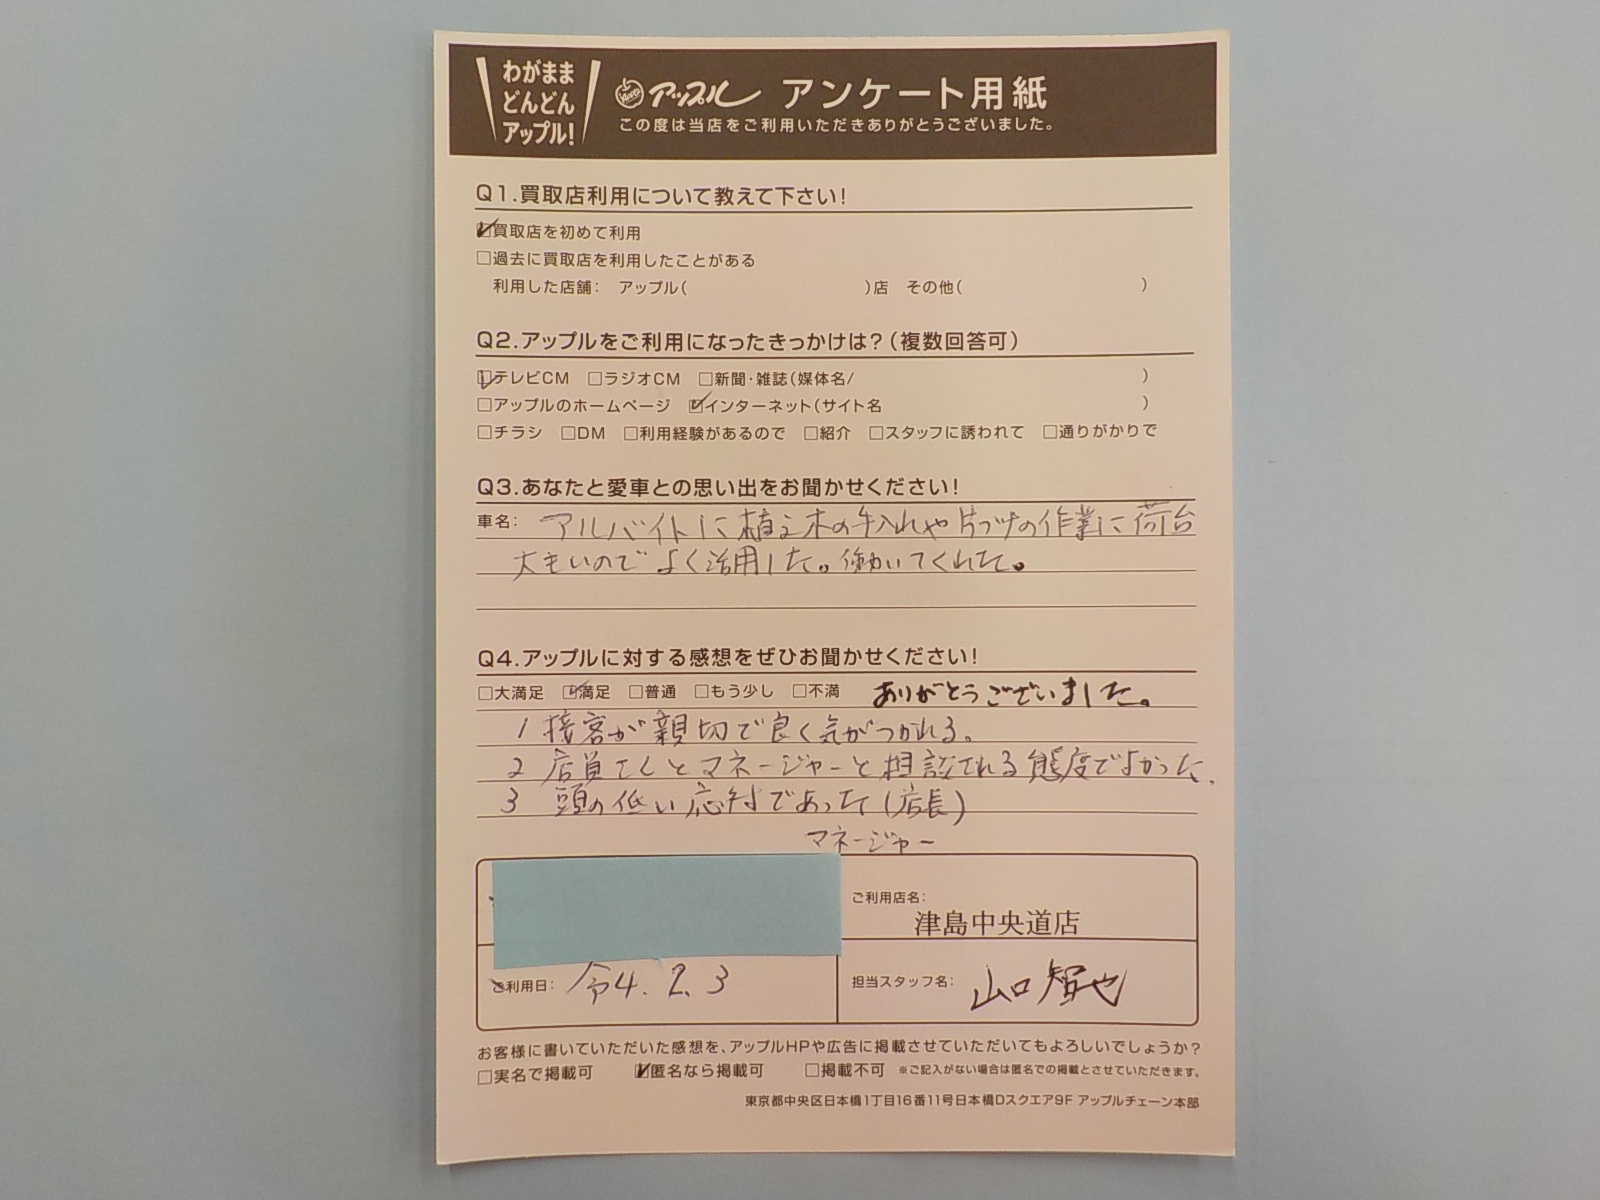 わがまま
どんどん
アップル!
アップル アンケート用紙
この度は当店をご利用いただきありがとうございました。
Q1.買取店利用について教えて下さい!
☑買取店を初めて利用
□過去に買取店を利用したことがある
利用した店舗: アップル( )店 その他( )
Q2.アップルをご利用になったきっかけは?(複数回答可)
☑テレビCM □ラジオCM □新聞・雑誌(媒体名/ )
□アップルのホームページ ☑インターネット(サイト名 )
□チラシ □DM □利用経験があるので □紹介 □スタッフに誘われて □通りがかりで
Q3.あなたと愛車との思い出をお聞かせください!
車名: アルバイトに植立木の手入れや片づけの作業に荷台
大きいのでよく活用した。働いてくれた。
Q4.アップルに対する感想をぜひお聞かせください!
□大満足 ☑満足 □普通 □もう少し □不満 ありがとうございました。
1 接客が親切で良く気がつかれる。
2 店員さんとマネージャーと相談される態度でよかった。
3 頭の低い応対であった(店長)
マネージャー
ご利用店名:
津島中央道店
ご利用日: 令4.2.3
担当スタッフ名: 山口智也
お客様に書いていただいた感想を、アップルHPや広告に掲載させていただいてもよろしいでしょうか?
□実名で掲載可 ☑匿名なら掲載可 □掲載不可 ※ご記入がない場合は匿名での掲載とさせていただきます。
東京都中央区日本橋1丁目16番11号日本橋Dスクエア9F アップルチェーン本部